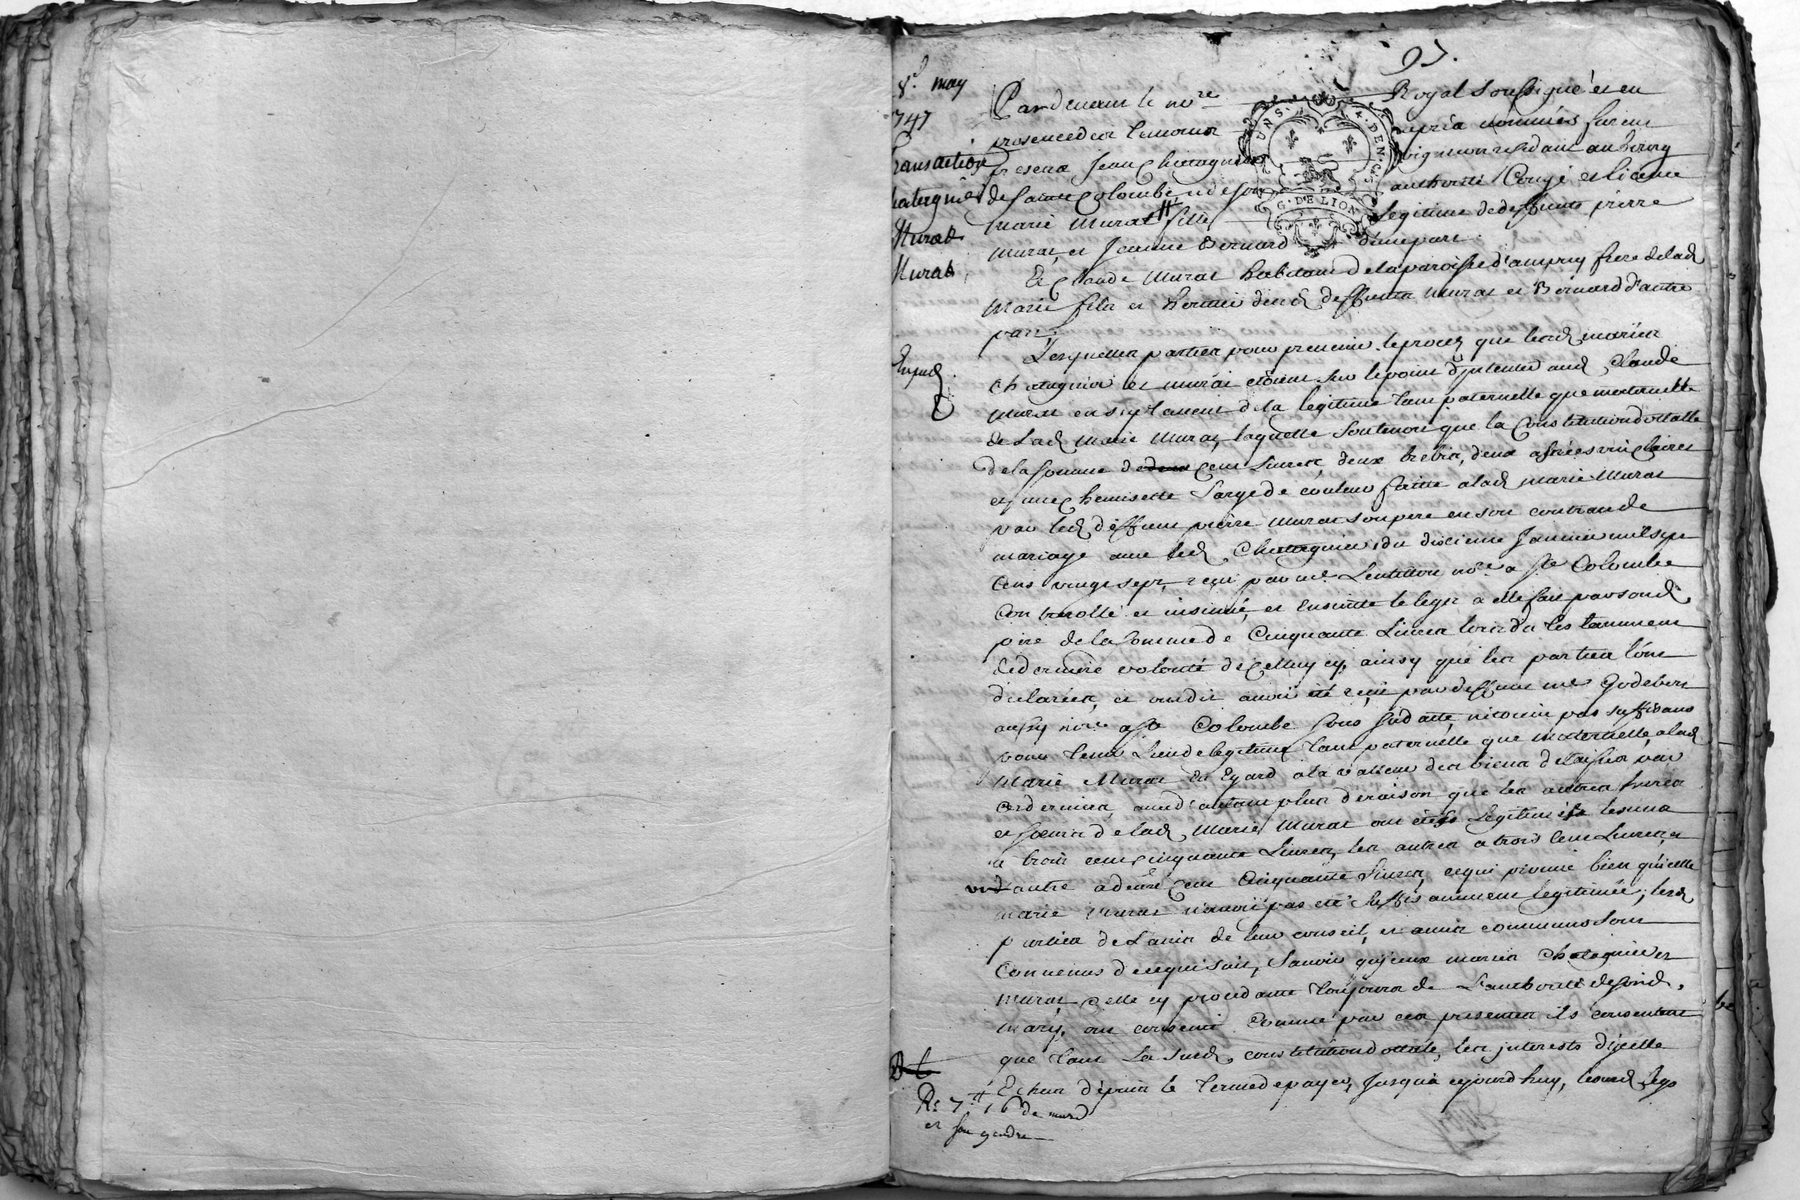 97.
8.e may
1747
Transaction
Chatagnier
Murat
Murat
Expedié
Pardevant le no.re Royal soussigné et en
presence des temoins apres nommés furent
presens Jean Chatagnier vigneron residant au bourg
de Sainte Colombe et de son authorité Congé et licence
Marie Murat fille legitime de deffunts pierre
Murat, et Jeanne Bernard d'une part.
Et Claude Murat habitant de la paroisse d'ampuy frere de lad.
Marie fils et heritier desd. deffunts Murat et Bernard d'autre
part;
Lesquelles parties pour prevenir le procez que lesd. mariés
Chatagnier et murat etoient sur le point d'jntenter aud. Claude
Murat en suplement de la legitime tant paternelle que maternelle
de Lad. Marie Murat, laquelle soutenoit que la Constitution dottalle
de la somme de cent livres, deux brebis, deux
et une chemisette sarge de couleur faitte a lad. marie Murat
par led. deffunt pierre Murat son pere en son contrat de
mariage avec led. Chatagnier, du dixieme Janvier mil sept
cens vingt sept, reçu par me. Lentillon no.re a ste Colombe
Controllé et insinué, et Ensuitte le legs a elle fait par sond.
pere de la somme de Cinquante Livres lors du testament
de derniere volonté de celluy cy, ainsy que les parties l'ont
declarées, et ont dit avoir été reçu par deffunt me. Godebert
aussy no.re a ste Colombe sous sa datte, n'etoient pas suffisans
pour tenir Lieu de legitime tant paternelle que maternelle, a lad.
Marie Murat Eu Egard a la valleur des biens delaissés par
ces derniers, avec d'autant plus de raison que les autres freres
et soeurs de lad. Marie Murat ont etés Legitimés les uns
a trois cens cinquante Livres, les autres a trois cens Livres, et
autre a deux cens Cinquante Livres, ce qui prouve bien qu'icelle
marie Murat n'avoit pas été suffisamment legitimée; lesd.
parties de L'avis de leur conseil, et amis communs sont
Convenus de ce qui suit, Savoir qu'jceux mariés Chatagnier et
Murat, celle cy procedante toujours de L'authorité de sond.
mary, ont consenti comme par ces presentes ils consentent
que tant La susd. constitution dottale, les jnterests d'jcelle
Echus depuis le terme de payer, jusqu'a ajourd'huy, lesd. legs
R. 7.# 16 de murat
et son gendre
UNS. 4. DEN. G. DE LION